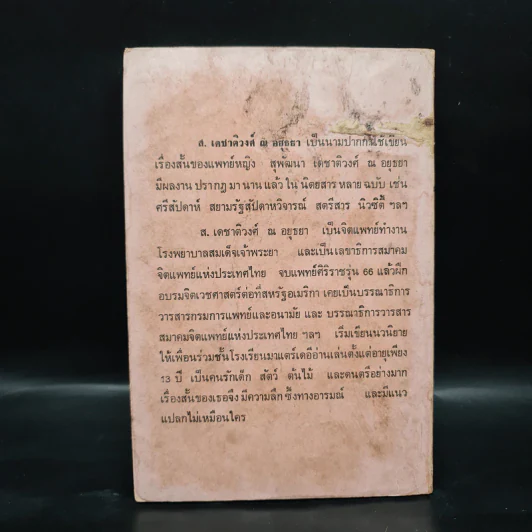 ส. เดชาติวงศ์ ณ อยุธยา เป็นนามปากกาที่ใช้เขียน
เรื่องสั้นของแพทย์หญิง สุพัฒนา เดชาติวงศ์ ณ อยุธยา
มีผลงาน ปรากฏ มา นาน แล้ว ใน นิตยสาร หลาย ฉบับ เช่น
ศรีสัปดาห์ สยามรัฐสัปดาหวิจารณ์ สตรีสาร นิวซิตี้ ฯลฯ
ส. เดชาติวงศ์ ณ อยุธยา เป็นจิตแพทย์ทำงาน
โรงพยาบาลสมเด็จเจ้าพระยา และเป็นเลขาธิการสมาคม
จิตแพทย์แห่งประเทศไทย จบแพทย์ศิริราชรุ่น 66 แล้วฝึก
อบรมจิตเวชศาสตร์ต่อที่สหรัฐอเมริกา เคยเป็นบรรณาธิการ
วารสารกรมการแพทย์และอนามัย และ บรรณาธิการวารสาร
สมาคมจิตแพทย์แห่งประเทศไทย ฯลฯ เริ่มเขียนนวนิยาย
ให้เพื่อนร่วมชั้นโรงเรียนมาแตร์เดอีอ่านเล่นตั้งแต่อายุเพียง
13 ปี เป็นคนรักเด็ก สัตว์ ต้นไม้ และดนตรีอย่างมาก
เรื่องสั้นของเธอจึง มีความลึก ซึ้งทางอารมณ์ และมีแนว
แปลกไม่เหมือนใคร